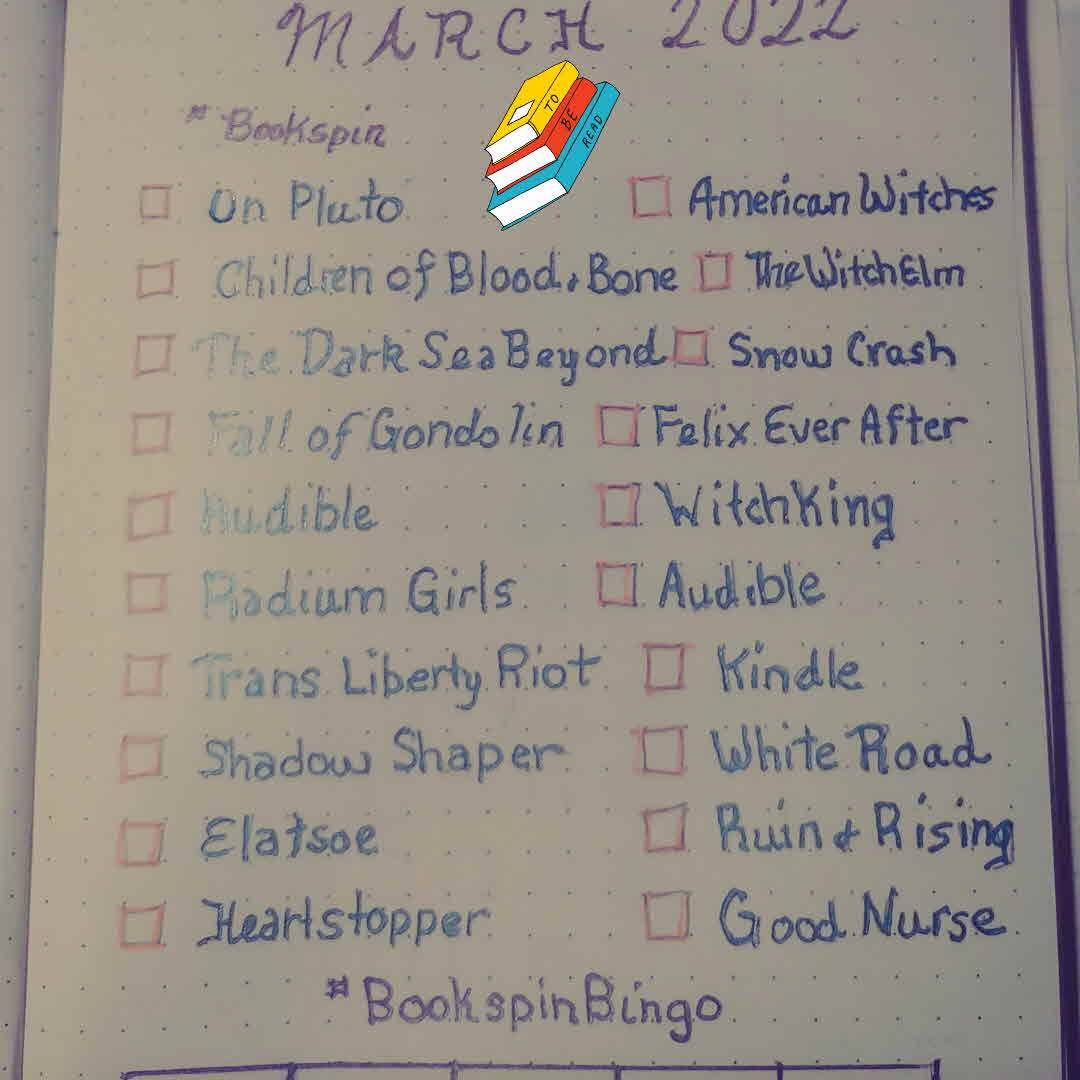 MARCH 2022
#Bookspin
TO
BE
READ
On Pluto
Children of Blood & Bone
The Dark Sea Beyond
Fall of Gondolin
Audible
Radium Girls
Trans Liberty Riot
Shadow Shaper
Elatsoe
Heartstopper
American Witches
The Witch Elm
Snow Crash
Felix Ever After
Witch King
Audible
Kindle
White Road
Ruin & Rising
Good Nurse
#BookspinBingo